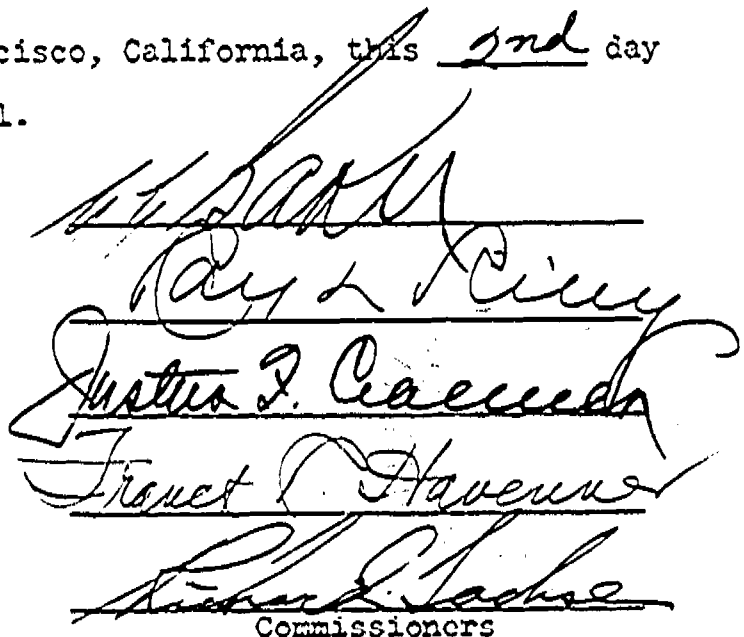 cisco, California, this 2nd day
1.
Baker
Ray L Riley
Justus F. Craemer
Franck R. Havenner
Richard Sachse
Commissioners